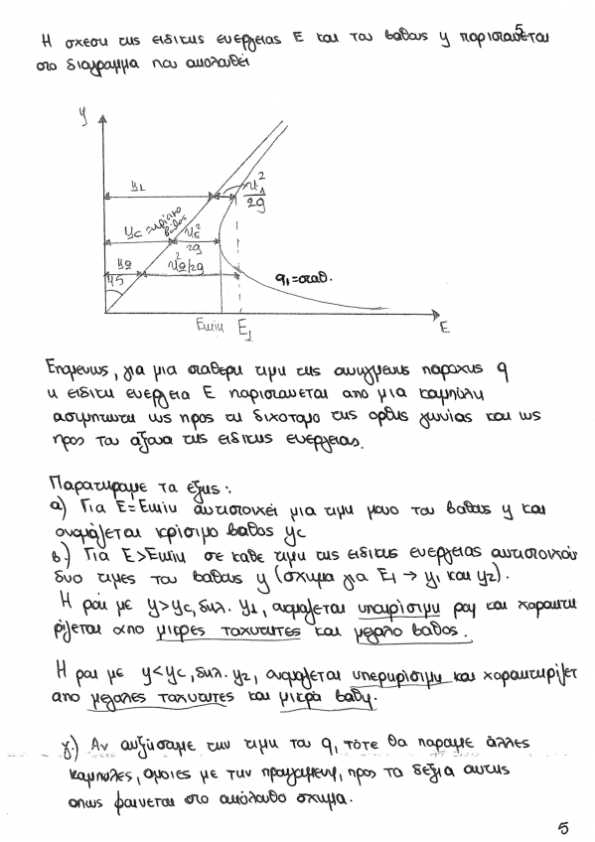 5
Η σχεση της ειδικης ενεργειας Ε και του βαθους y παριστανεται
στο διαγραμμα που ακολουθει
y
y1
u1²/2g
yc κρισιμο βαθος
uc²/2g
y2
u2²/2g
45
q1=σταθ.
Emin E1
E
Επομενως, για μια σταθερη τιμη της ανηγμενης παροχης q
η ειδικη ενεργεια Ε παριστανεται απο μια καμπυλη
ασυμπτωτη ως προς τη διχοτομο της ορθης γωνιας και ως
προς τον αξονα της ειδικης ενεργειας.
Παρατηραμε τα εξης:
α) Για Ε=Emin αντιστοιχει μια τιμη μονο του βαθους y και
ονομάζεται κρίσιμο βαθος yc
β.) Για Ε>Emin σε καθε τιμη της ειδικης ενεργειας αντιστοιχουν
δυο τιμες του βαθους y (σχημα για Ε1 → y1 και y2).
Η ροη με y>yc, δηλ. y1, ονομαζεται υποκρίσιμη ροη και χαρακτη
ρίζεται απο μικρες ταχυτητες και μεγαλο βαθος.
Η ροη με y<yc, δηλ. y2, ονομαζεται υπερκρίσιμη και χαρακτηρίζετ
απο μεγαλες ταχυτητες και μικρα βαθη.
γ.) Αν αυξήσαμε την τιμη του q, τότε θα παραμε άλλες
καμπυλες, ομοιες με την προηγουμενη, προς τα δεξια αυτης
οπως φαινεται στο ακόλουθο σχημα.
5